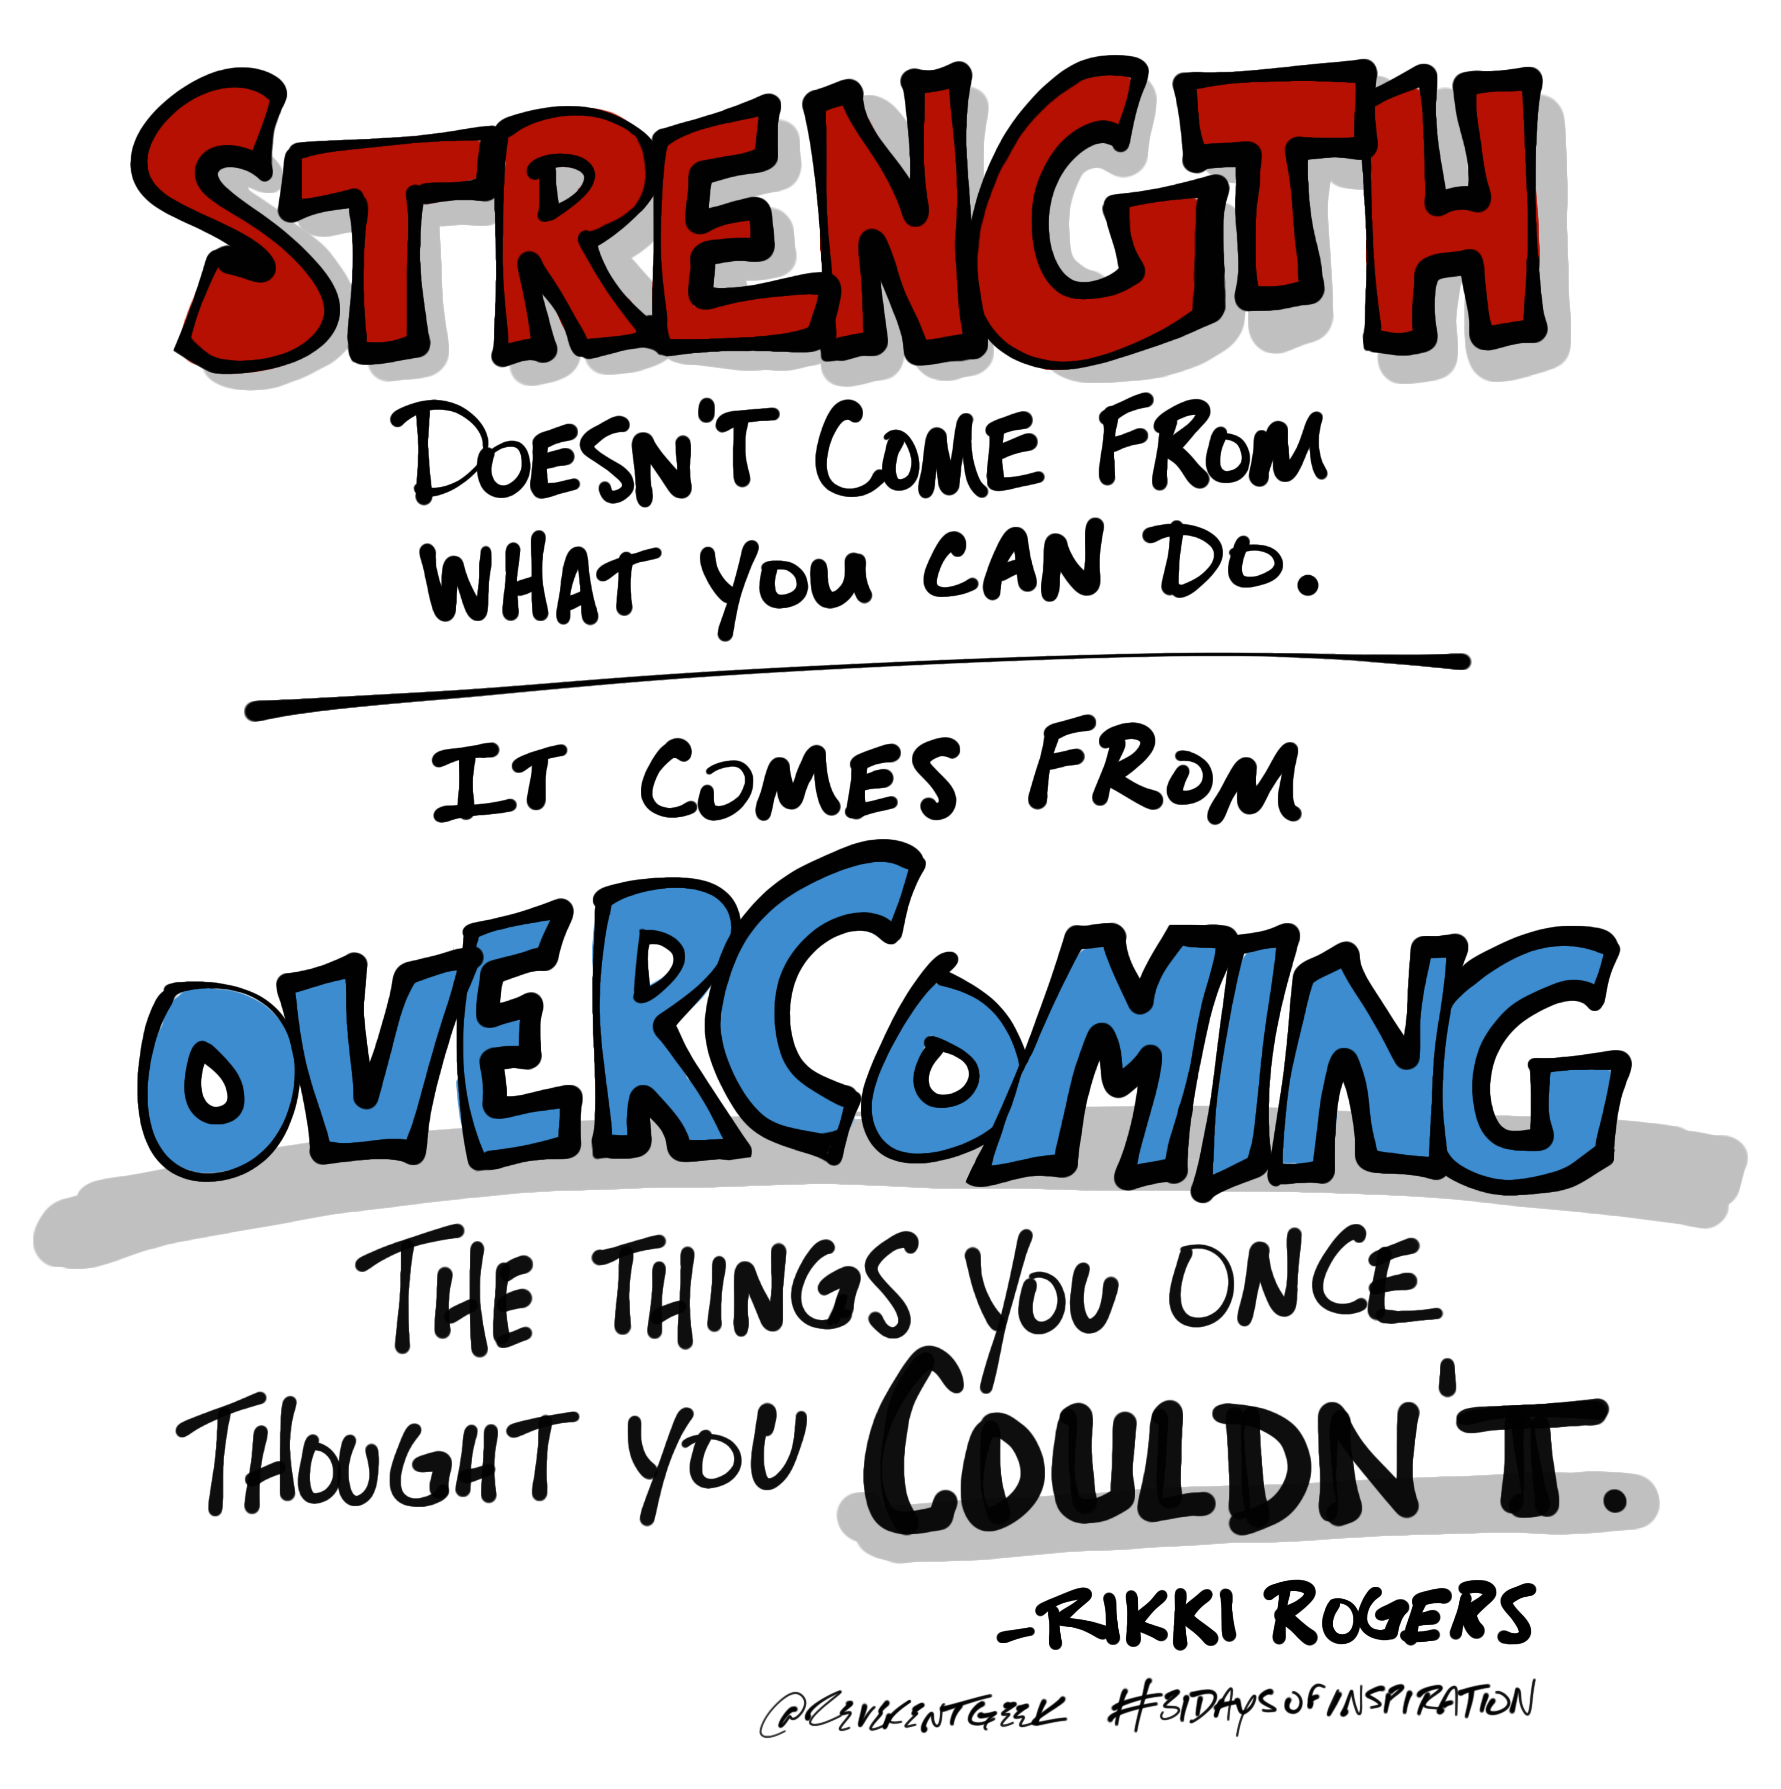 STRENGTH
DOESN'T COME FROM
WHAT YOU CAN DO.
IT COMES FROM
OVERCOMING
THE THINGS YOU ONCE
THOUGHT YOU COULDN'T.
-RIKKI ROGERS
@REVERENTGEEK #31DAYSOFINSPIRATION